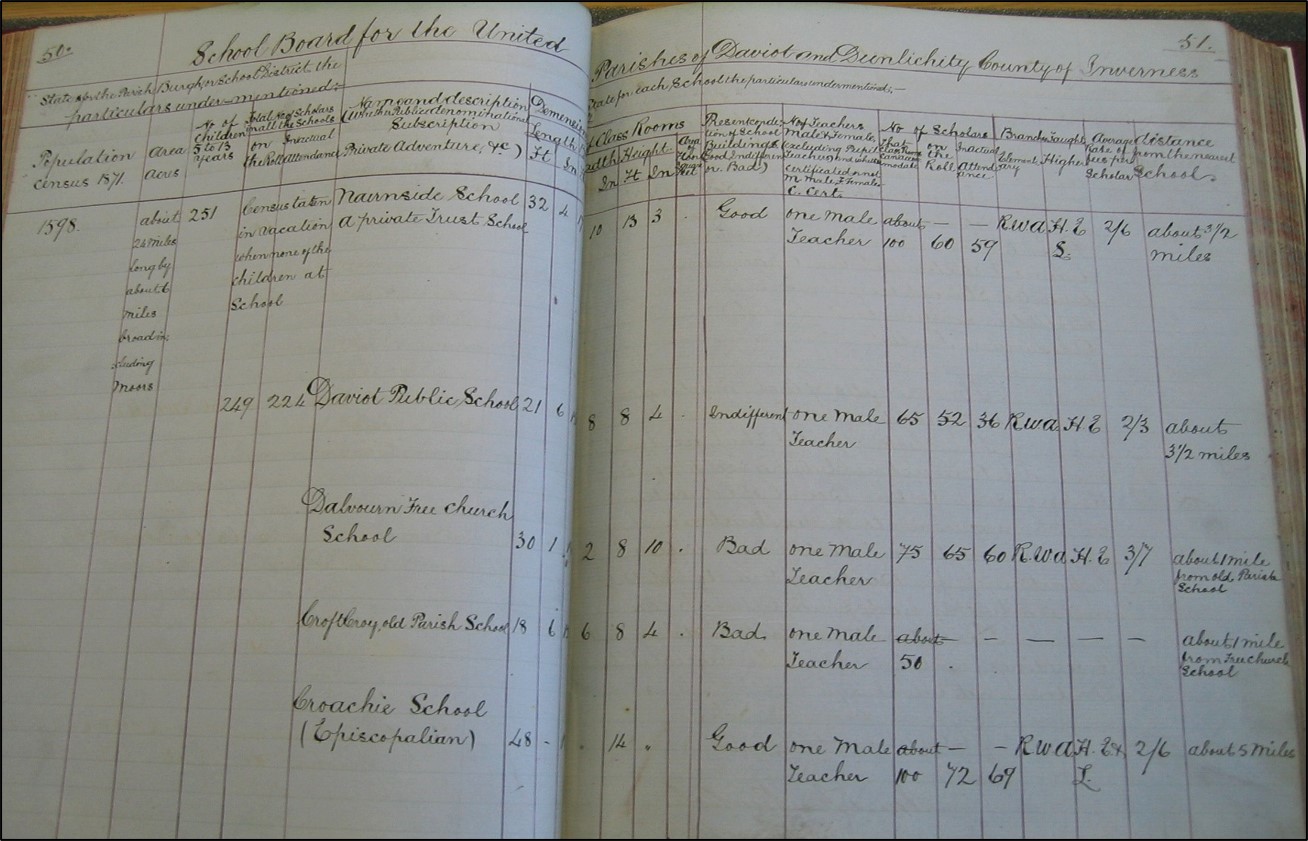 50.
School Board for the United
State for the Parish Burgh or School District the
particulars under-mentioned:
Population census 1871.
Area acres
No of children 5 to 13 years
Total No of Scholars in all the Schools
on the Roll
In actual attendance
Name and description
Subscription
Private Adventure, &c)
Length
Ft In
1598.
about 24 miles long by about 6 miles broad including Moors
251
Census taken in vacation when none of the children at School
Nairnside School
a private Trust School
32 4
249 224 Daviot Public School 21 6
Dalvourn Free Church
School 30 1
Croft Croy, old Parish School 18 6
Croachie School
(Episcopalian) 48 -
51.
Parishes of Daviot and Dunlichity County of Inverness
State for each School the particulars undermentioned;-
Class Rooms
Height
In Ft In
Present condition of School Buildings
Good Indifferent or Bad)
No of Teachers Male & Female
certificated or not
No of Scholars
That Class Room can accommodate
on the Roll
In actual Attendance
Branches Taught
Elementary
Higher
Average Rate of fees per Scholar
distance from the nearest School.
10 13 3 . Good one male about — — RWA H.E 2/6 about 3 1/2
Teacher 100 60 59 S. miles
8 8 4 . Indifferent one male 65 52 36 RWA H E 2/3 about
Teacher 3 1/2 miles
2 8 10 . Bad one male 75 65 60 R.WA H.E 3/7 about 1 mile
Teacher from old Parish
School
6 8 4 . Bad. one male about - — — — about 1 mile
Teacher 50 . from Free church
School
. 14 . Good one male about — - RWA H. E& 2/6 about 5 miles
Teacher 100 72 69 L.